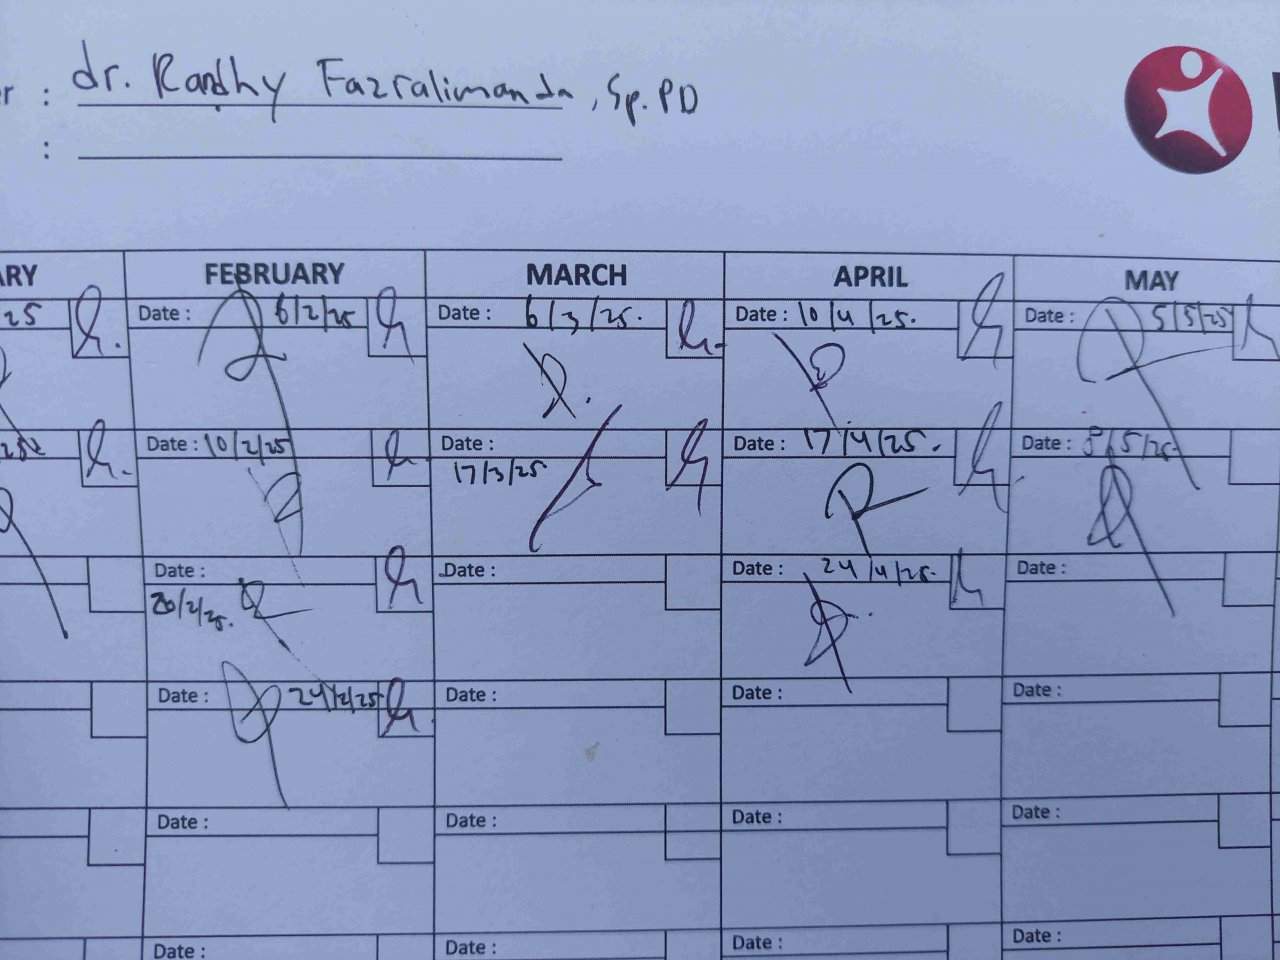 r : dr. Randhy Fazralimanda, Sp.PD
:
ARY FEBRUARY MARCH APRIL MAY
25 Date : 6/2/25 Date : 6/3/25. Date : 10/4/25. Date : 5/5/25
Date : 10/2/25 Date : 17/3/25 Date : 17/4/25. Date : 8/5/25
Date : 20/2/25. Date : Date : 24/4/25. Date :
Date : 24/2/25 Date : Date : Date :
Date : Date : Date : Date :
Date : Date : Date : Date :